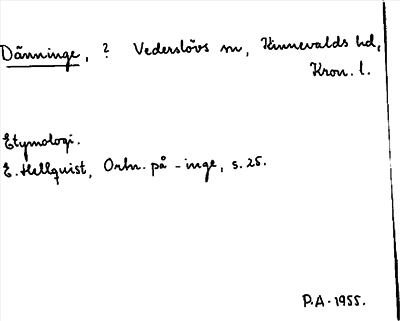 Dänninge, ? Vederslövs sn, Kinnevalds hd,
Kron. l.
Etymologi.
E. Hellquist, Ortn. på -inge, s. 25.
P.A. 1955.